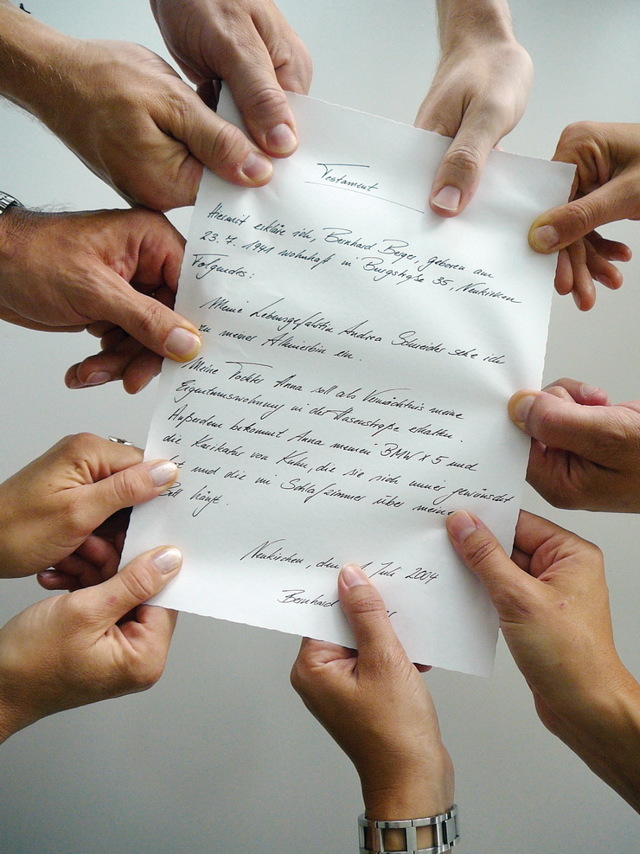 Testament
Hiermit erkläre ich, Bernhard Berger, geboren am
23. 7. 1941 wohnhaft in Burgstraße 35, Neukirchen
Folgendes:
Meine Lebensgefährtin Andrea Schneider setze ich
zu meiner Alleinerbin ein.
Meine Tochter Anna soll als Vermächtnis meine
Eigentumswohnung in der Hasenstraße erhalten.
Außerdem bekommt Anna meinen BMW X5 und
die Karikatur von Kuhn, die sie sich immer gewünscht
und die im Schlafzimmer über meinem
Bett hängt.
Neukirchen, den Juli 2004
Bernhard